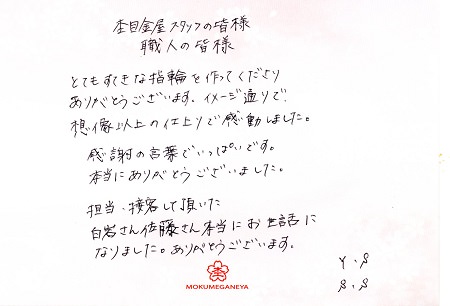 杢目金屋スタッフの皆様
職人の皆様
とてもすてきな指輪を作ってくださり
ありがとうございます。イメージ通りで、
想像以上の仕上りで感動しました。
感謝の言葉でいっぱいです。
本当にありがとうございました。
担当・接客して頂いた
白岩さん佐藤さん本当にお世話に
なりました。ありがとうございます。
Y.S
S.S
MOKUMEGANEYA